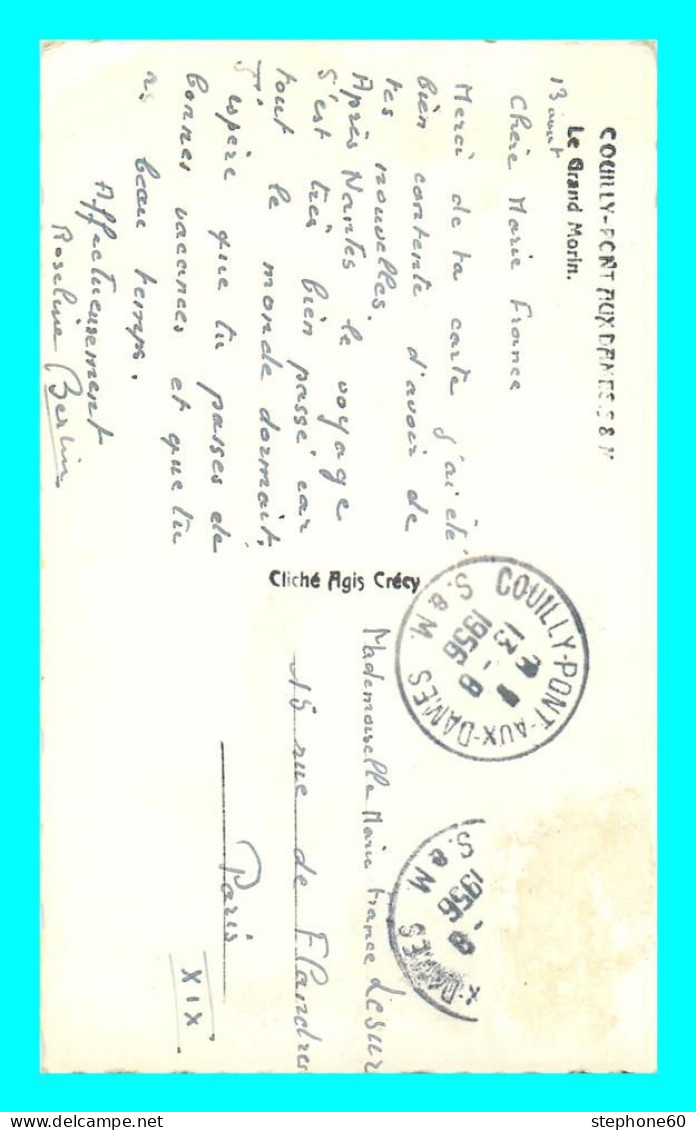 COUILLY-PONT AUX DAMES S & M
Le Grand Morin.
13 aout
Chère Marie France
Merci de ta carte J'ai été
bien contente d'avoir de
tes nouvelles.
Après Nantes le voyage
s'est très bien passé car
tout le monde dormait,
J'espère que tu passes de
bonnes vacances et que tu
as beau temps.
Affectueusement
Roseline Berlin
Cliché Agis Crécy
COUILLY-PONT-AUX-DAMES
13
8
1956
S. & M.
X-DAMES
8
1956
S. & M.
Mademoiselle Marie France Lesur
15 rue de Flandres
Paris
XIX
stephone60